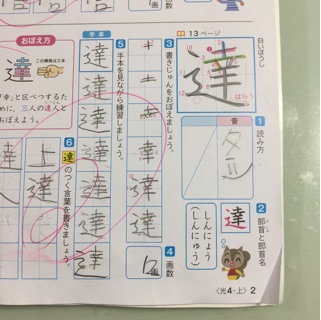 13ページ
白いぼうし
達
はらう
1 読み方
音
タツ
2 部首と部首名
達
しんにょう
(しんにゅう)
3 書きじゅんをおぼえましょう。
幸
達
4 画数
画
5 手本を見ながら練習しましょう。
手本
達
達
達
達
達
達
達
6 達のつく言葉を書きましょう。
上
達
おぼえ方
達
この横画は三本
「幸」と区べつするた
めに、三人の達人と
おぼえよう。
〈光4・上〉2